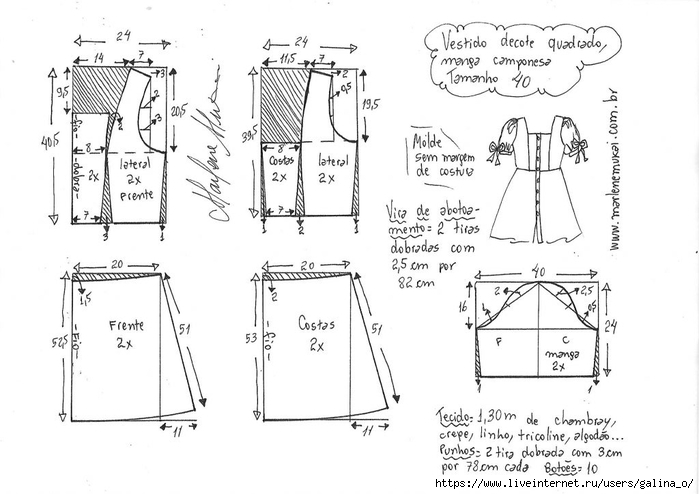 Vestido decote quadrado,
manga camponesa
Tamanho 40
24
14
7
9,5
3
2
3
20,5
40,5
2
8
lateral
2x
Frente
-Fio-
2x
-dobra-
7
3
1
24
11,5
7
2
0,5
19,5
39,5
8
Costas
2x
lateral
2x
1
7
2
1
Molde
sem margem
de costura
www.marlenemukai.com.br
Vira de abotoa-
mento = 2 tiras
dobradas com
2,5cm por
82cm
20
1,5
Frente
2x
-Fio-
52,5
51
11
20
2
Costas
2x
-Fio-
53
51
11
40
2
2,5
16
1
0,5
24
F
C
manga
2x
1
1
Tecido = 1,30m de chambray,
crepe, linho, tricoline, algodão...
Punhos = 2 tira dobrada com 3cm
por 78cm cada Botões = 10
https://www.liveinternet.ru/users/galina_o/